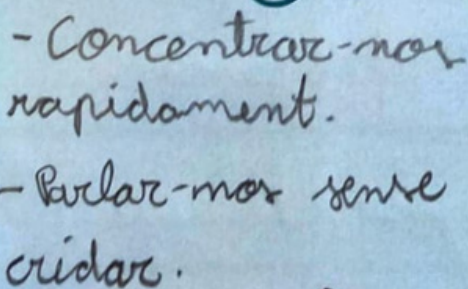 - Concentrar-nos
rapidament.
- Parlar-nos sense
cridar.